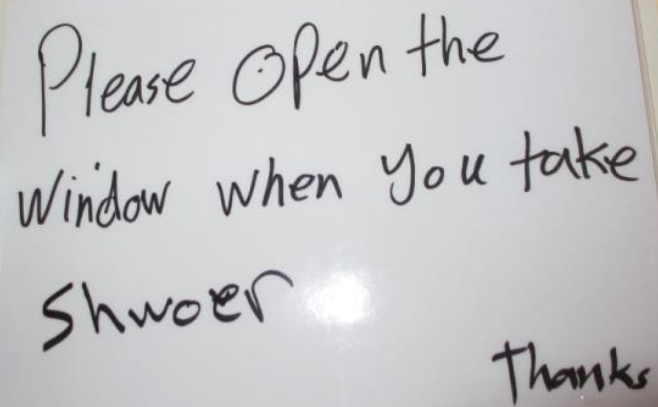 Please open the
window when you take
shwoer
Thanks